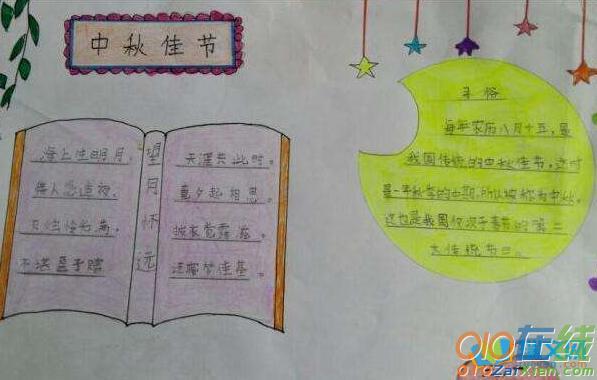 中秋佳节
海上生明月,
情人怨遥夜,
灭烛怜光满,
不堪盈手赠
望月怀远
天涯共此时。
竟夕起相思。
披衣觉露滋。
还寝梦佳期。
习俗
每年农历八月十五,是
我国传统的中秋佳节,这时
是一年秋季的中期,所以被称为中秋。
这也是我国仅次于春节的第二
大传统节日。
010在线
010ZaiXian.com